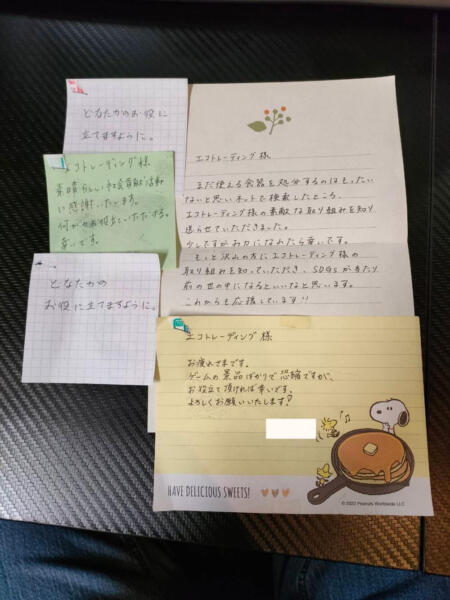 どなたかのお役に
立てますように。
エコトレーディング様
素晴らしい社会貢献活動
に感謝いたします。
何かのお役立ていただけると
幸いです。
どなたかの
お役に立てますように。
エコトレーディング様
まだ使える食器を処分するのはもったい
ないと思いネットで検索したところ、
エコトレーディング様の素敵な取り組みを知り
送らせていただきました。
少しですがお力になれたら幸いです。
もっと沢山の方にエコトレーディング様の
取り組みを知っていただき、SDGsが当たり
前の世の中になるといいなと思います。
これからも応援しています!!
エコトレーディング様
お疲れさまです。
ゲームの景品ばかりで恐縮ですが、
お役立て頂ければ幸いです。
よろしくお願いいたします!
HAVE DELICIOUS SWEETS!
© 2022 Peanuts Worldwide LLC